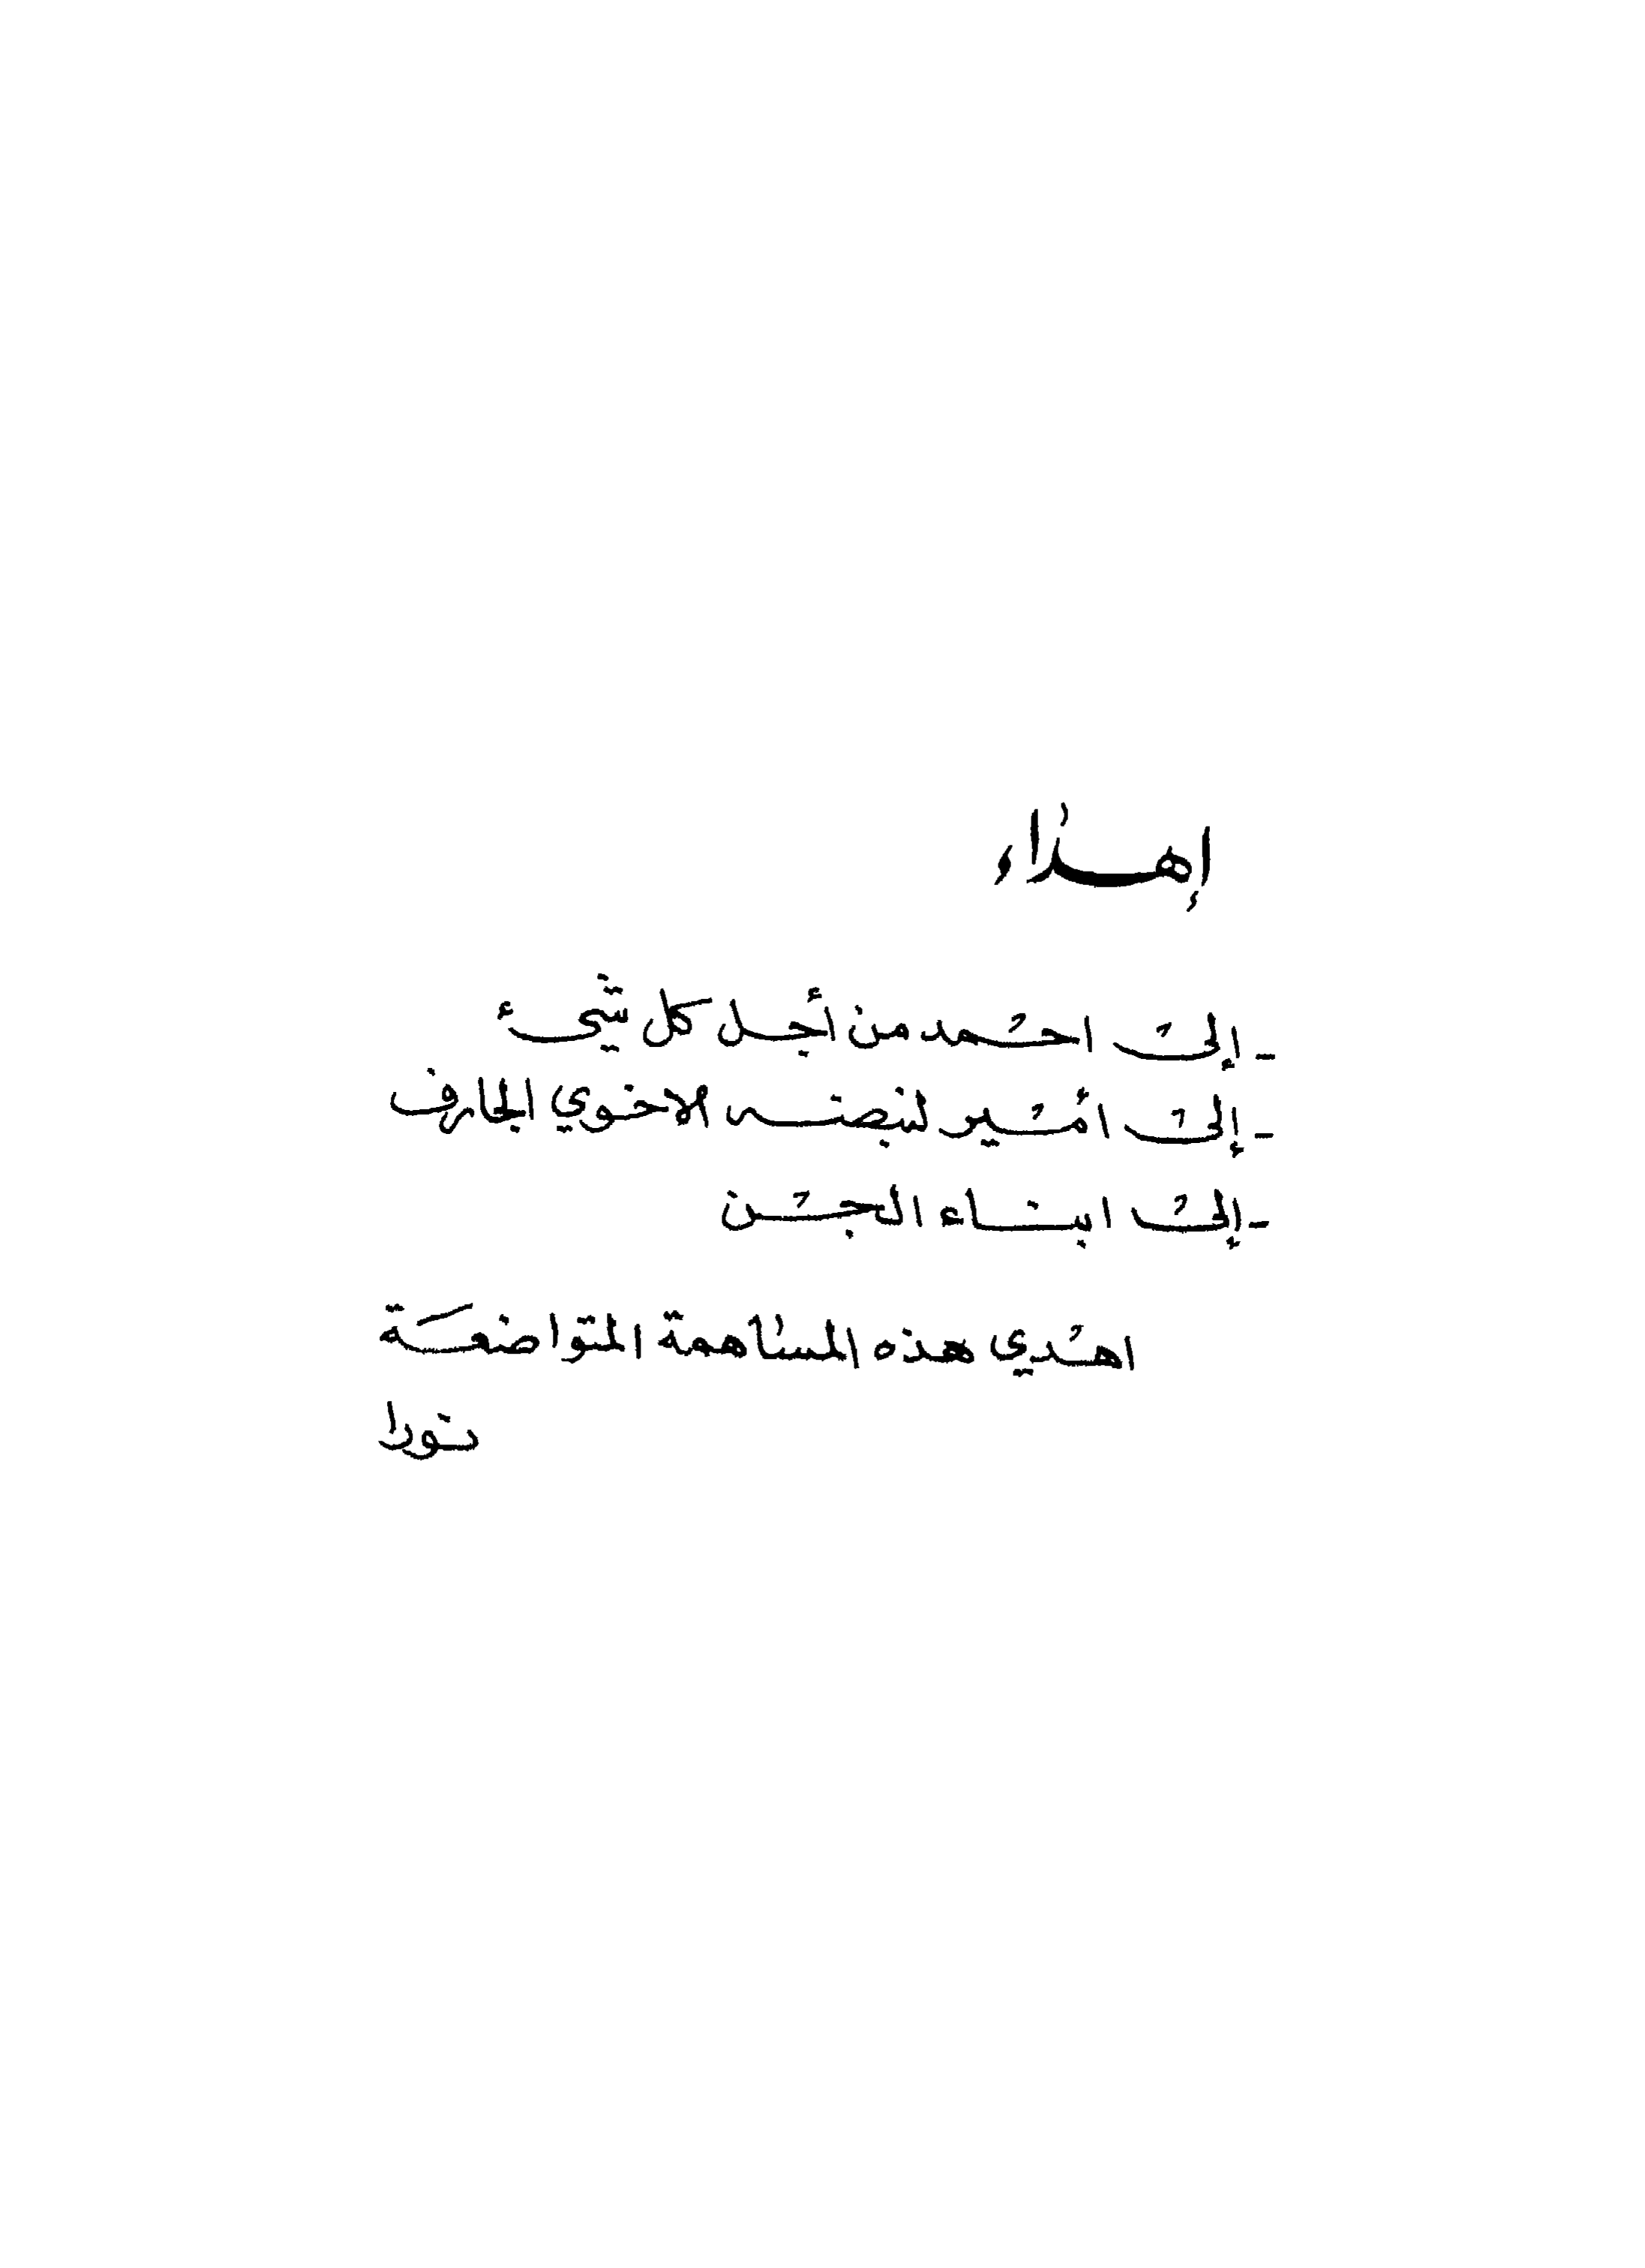 إهداء
- إلى احمد من أجل كل شيئ
- إلى أمير لنبضه الاخوي الجارف
- إلى ابناء الجن
اهدي هذه المساهمة المتواضعة
نورا